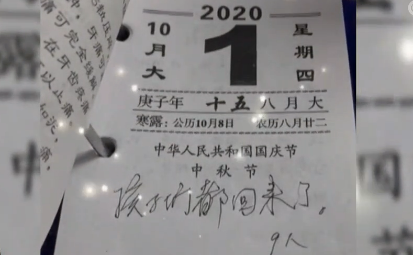 2020
10月大
1
星期四
庚子年 十五 八月大
寒露:公历10月8日 农历八月廿二
中华人民共和国国庆节
中秋节
孩子们都回来了。
9人